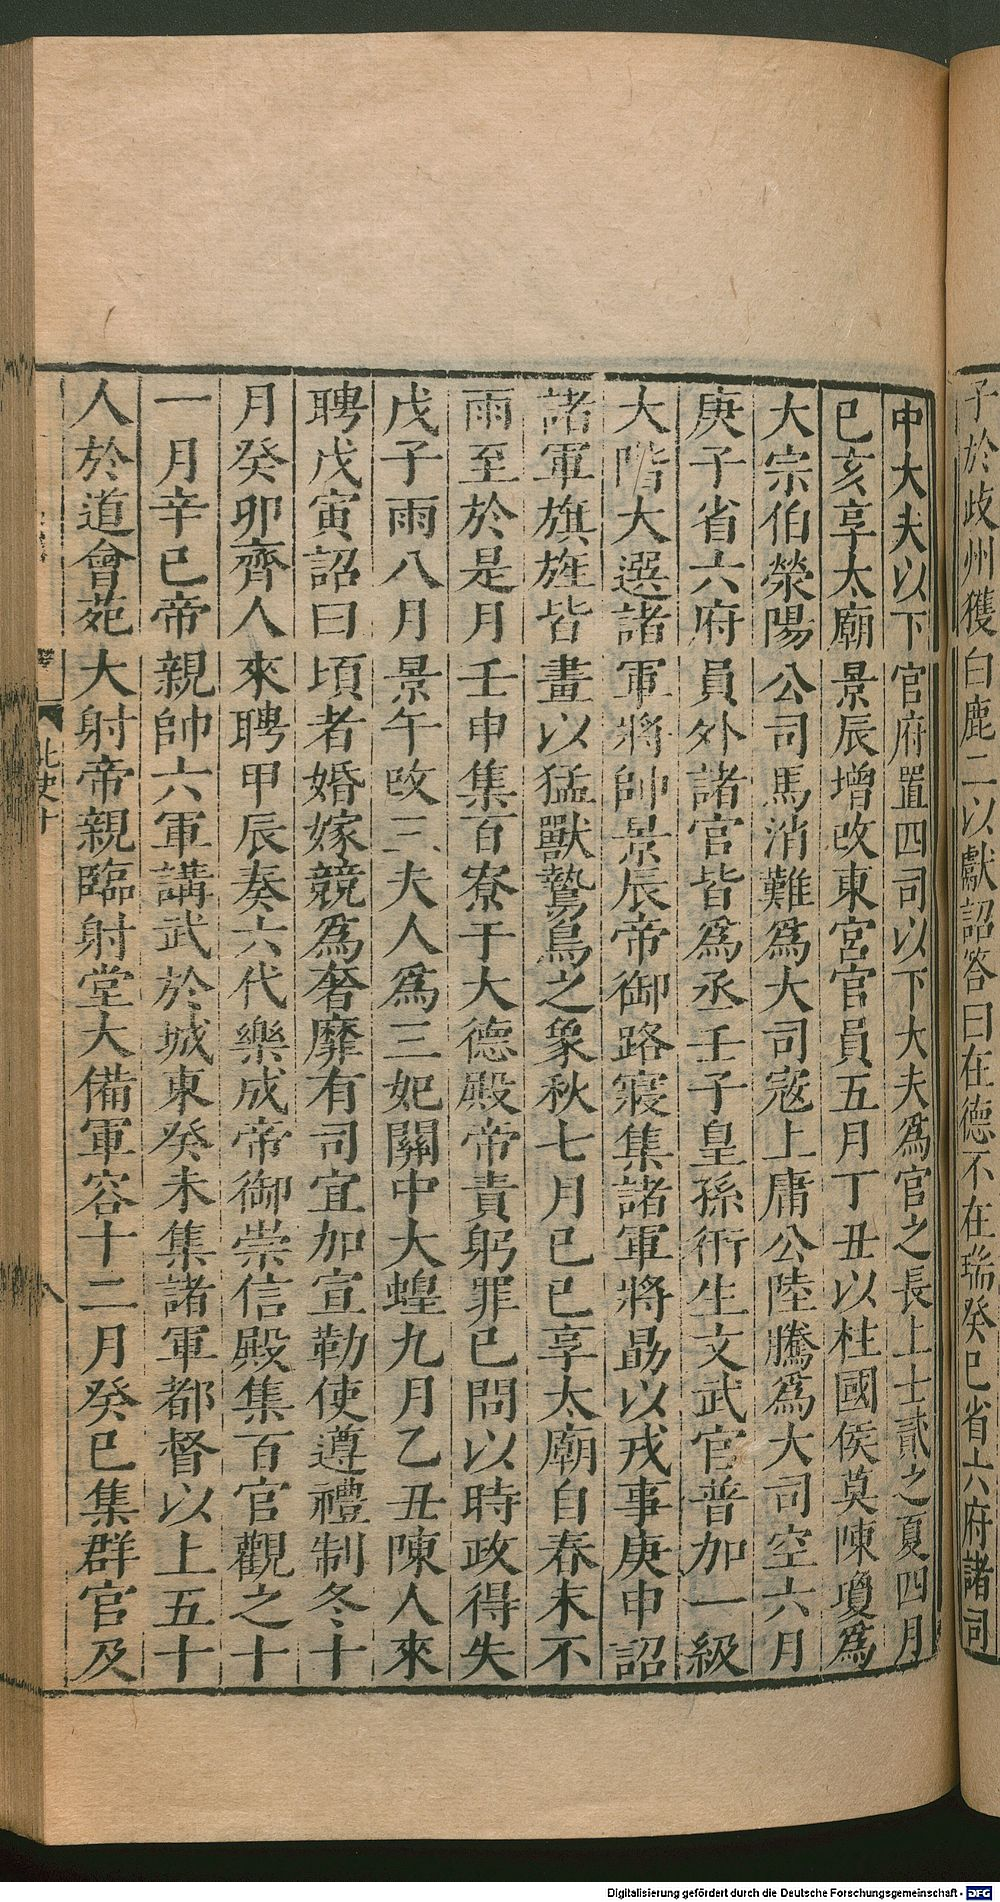 子於歧州獲白鹿二以獻詔答曰在德不在瑞癸巳省六府諸司
中大夫以下官府置四司以下大夫爲官之長上士貳之夏四月
巳亥享太廟景辰增改東宮官員五月丁丑以柱國侯莫陳瓊爲
大宗伯滎陽公司馬消難爲大司寇上庸公陸騰爲大司空六月
庚子省六府員外諸官皆爲丞壬子皇孫衍生文武官普加一級
大階大選諸軍將帥景辰帝御路寢集諸軍將勗以戎事庚申詔
諸軍旗旌皆畫以猛獸鷙鳥之象秋七月巳巳享太廟自春末不
雨至於是月壬申集百寮于大德殿帝責躬罪巳問以時政得失
戊子雨八月景午改三夫人爲三妃關中大蝗九月乙丑陳人來
聘戊寅詔曰頃者婚嫁競爲奢靡有司宜加宣勒使遵禮制冬十
月癸卯齊人來聘甲辰奏六代樂成帝御崇信殿集百官觀之十
一月辛巳帝親帥六軍講武於城東癸未集諸軍都督以上五十
人於道會苑大射帝親臨射堂大備軍容十二月癸巳集群官及
北史十
八
Digitalisierung gefördert durch die Deutsche Forschungsgemeinschaft - DFG